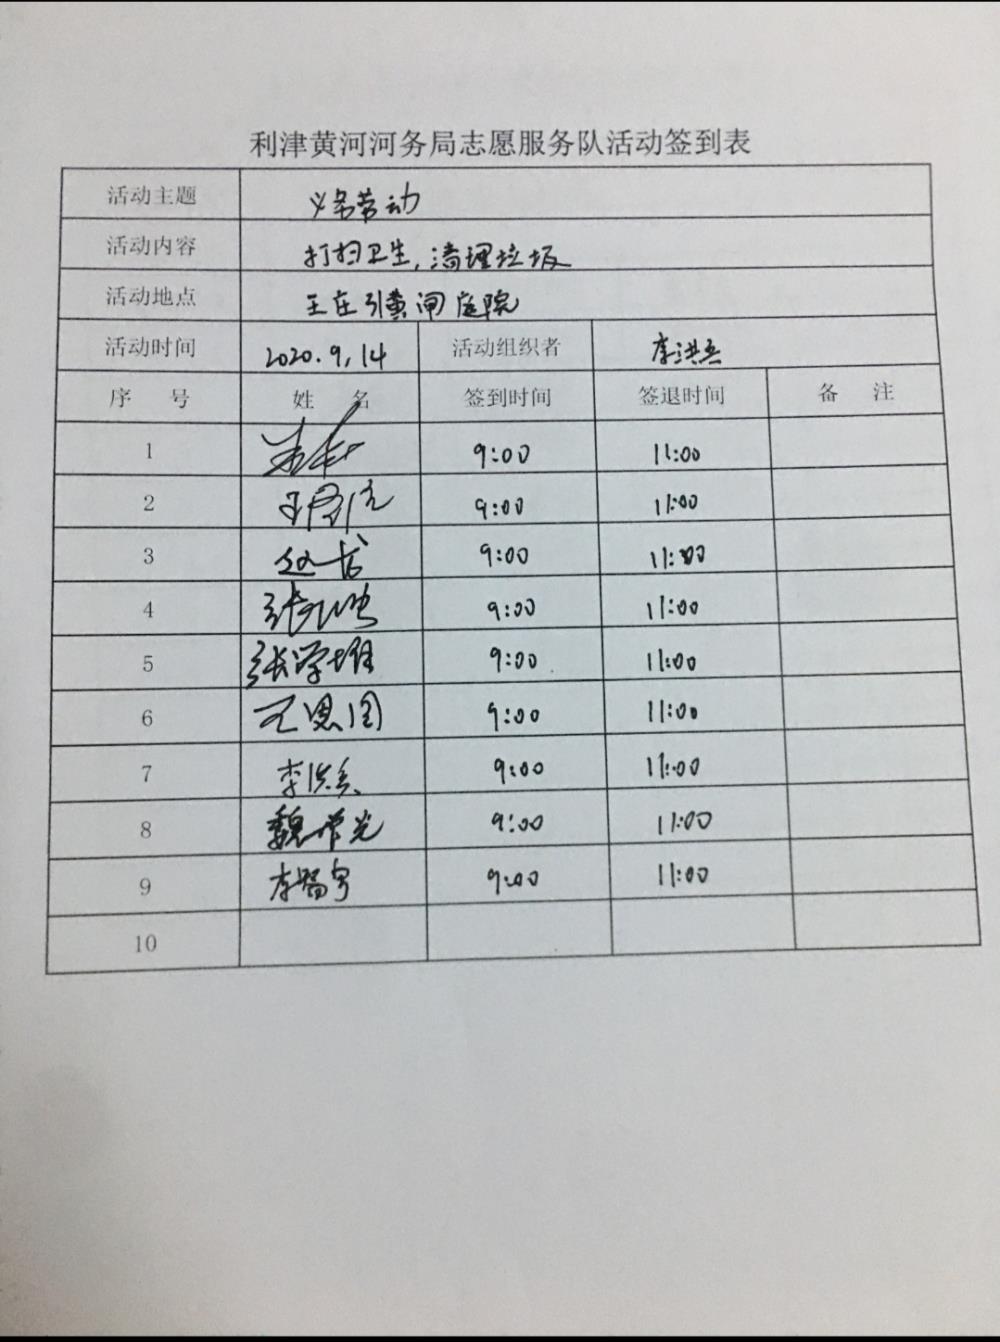 利津黄河河务局志愿服务队活动签到表
活动主题 义务劳动
活动内容 打扫卫生,清理垃圾
活动地点 王庄引黄闸庭院
活动时间 2020.9,14 活动组织者 李洪
序 号 姓 名 签到时间 签退时间 备 注
1 9:00 11:00
2 王 9:00 11:00
3 赵 9:00 11:00
4 张 9:00 11:00
5 张学 9:00 11:00
6 王恩国 9:00 11:00
7 李洪 9:00 11:00
8 魏 光 9:00 11:00
9 李 宇 9:00 11:00
10